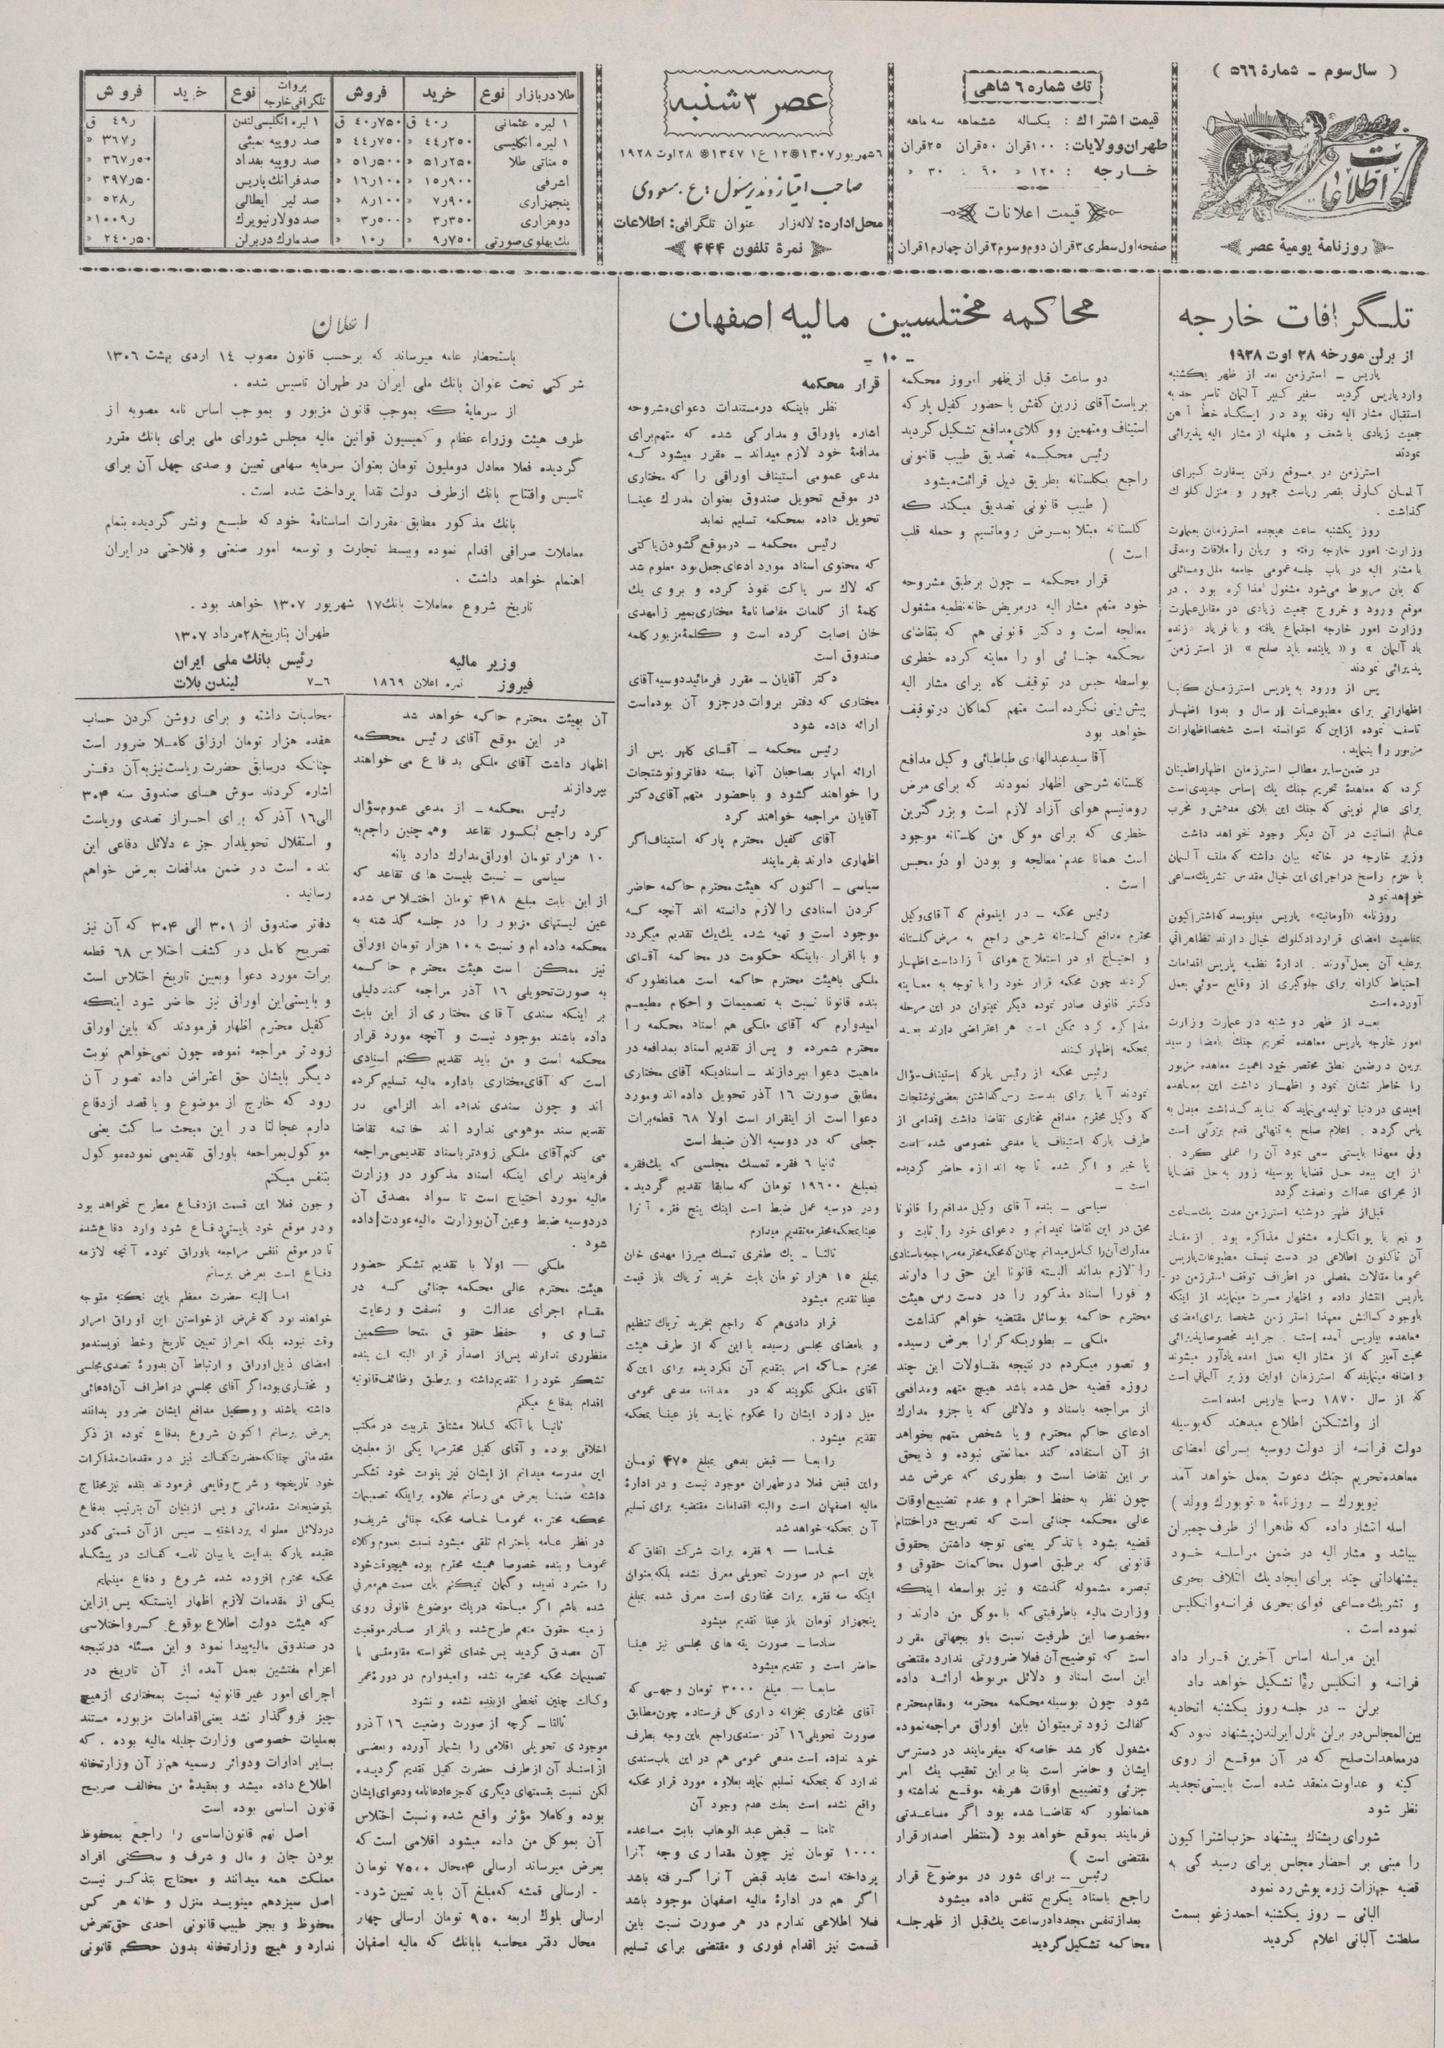 ( سال سوم – شماره ۵۶۶ )
اطلاعات
روزنامهٔ یومیهٔ عصر
تك شماره ۶ شاهی
قیمت اشتراك : یکساله ششماهه سه ماهه
طهران وولایات: ۱۰۰ قران ۵۰ قران ۲۵ قران
خارجه : ۱۲۰ » ۶۰ » ۳۰ »
قیمت اعلانات
صفحه اول سطری ۳ قران دوم و سوم ۲ قران چهارم ۱ قران
عصر ۳ شنبه
۶ شهریور ۱۳۰۷ ۱۲ ع ۱ ۱۳۴۷ ۲۸ اوت ۱۹۲۸
صاحب امتیاز و مدیر مسئول : ع . مسعودی
محل اداره: لاله‌زار عنوان تلگرافی: اطلاعات
نمرهٔ تلفون ۴۴۴
طلا در بازار نوع خرید فروش
۱ لیره عثمانی
۱ لیره انگلیسی
۵ مناتی طلا
اشرفی
پنجهزاری
دوهزاری
یك پهلوی صورتی
بروات تلگرافی خارجه نوع خرید فروش
۱ لیره انگلیسی لندن
صد روپیه بمبئی
صد روپیه بغداد
صد فرانك پاریس
صد لیر ایطالی
صد دولار نیویرك
صد مارك در برلن
تلگرافات خارجه
از برلن مورخه ۲۸ اوت ۱۹۲۸
پاریس – استرزمن بعد از ظهر یکشنبه
وارد پاریس گردید سفیر کبیر آلمان تاسر حد به
استقبال مشار الیه رفته بود در ایستگاه خط آهن
جمعیت زیادی با شعف و هلهله از مشار الیه پذیرائی
نمودند
استرزمن در موقع رفتن بسفارت کبرای
گذاشت .
روز یکشنبه ساعت هیجده استرزمان بعمارت
وزارت امور خارجه رفته و بریان را ملاقات ومدتی
با مشار الیه در باب جلسه عمومی جامعه ملل و مسائلی
که بآن مربوط می‌شود مشغول مذاکره بود . در
موقع ورود و خروج جمعیت زیادی در مقابل عمارت
وزارت امور خارجه اجتماع یافته و با فریاد «زنده
باد آلمان » و« پاینده باد صلح » از استرزمن
پذیرائی نمودند
پس از ورود به پاریس استرزمان کتبا
اظهاراتی برای مطبوعات ارسال و بدوا اظهار
تاسف نموده از این که نتوانسته است شخصا اظهارات
مزبور را بنماید .
در ضمن سایر مطالب استرزمان اظهار اطمینان
کرده که معاهدهٔ تحریم جنك یك اساس جدیدی است
برای عالم نوینی که جنك این بلای مدهش و مخرب
عالم انسانیت در آن دیگر وجود نخواهد داشت
وزیر خارجه در خاتمه بیان داشته که ملت آلمان
با عزم راسخ در اجرای این خیال مقدس تشریك مساعی
خواهد نمود
روزنامه «اومانیته» پاریس مینویسد که اشتراکیون
بمناسبت امضای قرارداد کلوك خیال دارند تظاهراتی
برعلیه آن بعمل آورند . ادارهٔ نظمیه پاریس اقدامات
احتیاط کارانه برای جلوگیری از وقایع سوئی بعمل
آورده است
بعد از ظهر دوشنبه در عمارت وزارت
امور خارجه پاریس معاهده تحریم جنك بامضا رسید
بریان در ضمن نطق مختصر خود اهمیت معاهده مزبور
را خاطر نشان نمود و اظهار داشت این معاهده
امیدی در دنیا تولید می‌نماید که نباید گذاشت مبدل به
یاس گردد . اعلام صلح به تنهائی قدم بزرگی است
ولی معهذا بایستی سعی نمود آن را عملی کرد .
از این ببعد حل قضایا بوسیله زور به حل قضایا
از مجرای عدالت ونصفت گردد
قبل از ظهر دوشنبه استرزمن مدت یك ساعت
و نیم با پوانکاره مشغول مذاکره بود . از مفاد
آن تاکنون اطلاعی در دست نیست مطبوعات پاریس
عموما مقالات مفصلی در اطراف توقف استرزمن در
پاریس انتشار داده و اظهار مسرت مینمایند از اینکه
باوجود کسالتش معهذا استرزمن شخصا برای امضای
معاهده بپاریس آمده است . جراید مخصوصا پذیرائی
محبت آمیز که از مشار الیه بعمل آمده یادآور میشوند
و اضافه مینمایند که استرزمان اولین وزیر آلمانی است
که از سال ۱۸۷۰ رسما بپاریس آمده است
از واشنگتن اطلاع میدهند که بوسیله
دولت فرانسه از دولت روسیه برای امضای
معاهده تحریم جنك دعوت بعمل خواهد آمد
نیویورك – روزنامهٔ « نیویورك وولد )
اسله انتشار داده که ظاهرا از طرف چمبرلن
میباشد و مشار الیه در ضمن مراسله خود
پیشنهاداتی چند برای ایجاد یك ائتلاف بحری
و تشریك مساعی قوای بحری فرانسه و انگلیس
نموده است .
این مراسله اساس آخرین قرار داد
فرانسه و انگلیس را تشکیل خواهد داد
برلن – در جلسه روز یکشنبه اتحادیه
بین‌المجالس در برلن نارل ایرلندن پیشنهاد نمود که
در معاهدات صلح که در آن موقع از روی
کینه و عداوت منعقد شده است بایستی تجدید
نظر شود
شورای ریشتاك پیشنهاد حزب اشتراکیون
را مبنی بر احضار مجلس برای رسیدگی به
قضیه جهازات زره پوش رد نمود
البانی – روز یکشنبه احمد زغو بسمت
سلطنت آلبانی اعلام گردید
محاکمه مختلسین مالیه اصفهان
– ۱۰ –
دو ساعت قبل از ظهر امروز محکمه
بریاست آقای زرین کفش با حضور کفیل پارکه
استیناف و متهمین و وکلای مدافع تشکیل گردید
رئیس محکمه تصدیق طبیب قانونی
راجع بگلستانه بطریق ذیل قرائت میشود
( طبیب قانونی تصدیق میکند که
گلستانه مبتلا بمرض روماتیسم و حمله قلب
است )
قرار محکمه – چون برطبق مشروحه
خود متهم مشار الیه در مریض خانه نظمیه مشغول
معالجه است و دکتر قانونی هم که بتقاضای
محکمه جنائی او را معاینه کرده خطری
بواسطه حبس در توقیف گاه برای مشار الیه
پیش بینی نکرده است متهم کماکان در توقیف
خواهد بود
آقا سید عبدالهادی طباطبائی وکیل مدافع
گلستانه شرحی اظهار نمودند که برای مرض
روماتیسم هوای آزاد لازم است و بزرگترین
خطری که برای موکل من گلستانه موجود
است همانا عدم معالجه و بودن او در محبس
است .
رئیس محکمه – در اینموقع که آقای وکیل
محترم مدافع گلستانه شرحی راجع به مرض گلستانه
و احتیاج او در استعلاج هوای آزاد است اظهار
کردند چون محکمه قرار خود را با توجه به معاینه
دکتر قانونی صادر نموده دیگر نمیتوان در این مرحله
مذاکره کرد ممکن است هر اعتراضی دارند بعد
بمحکمه اظهار کنند
رئیس محکمه از رئیس پارکه استیناف سؤال
نمودند آیا برای بدست رس گذاشتن بعضی نوشتجات
که وکیل محترم مدافع مختاری تقاضا داشت اقدامی از
طرف پارکه استیناف یا مدعی خصوصی شده است
یا خیر و اگر شده تا چه اندازه حاضر گردیده
است –
سیاسی – بنده آقای وکیل مدافع را قانونا
محق در این تقاضا نمیدانم و دعوای خود را ثابت و
مدارك آن را کامل میدانم چنان که محکمه محترمه مراجعه باسنادی
را لازم بداند البته قانونا این حق را دارند
و فورا اسناد مذکور را در دست رس هیئت
محترم حاکمه بوسائل مقتضیه خواهم گذاشت
ملکی – بطوریکه کرارا بعرض رسیده
و تصور میکردم در نتیجه مقاولات این چند
روزه قضیه حل شده باشد هیچ متهم و مدافعی
از مراجعه باسناد و دلائلی که با جزو مدارك
ادعای حاکم محترم و یا شخص متهم بخواهد
از آن استفاده کند ممانعتی نبوده و ذیحق
بر این تقاضا است و بطوری که عرض شد
چون نظر به حفظ احترام و عدم تضییع اوقات
عالی محکمه جنائی است که تصریح در اختتام
قضیه بشود با تذکر یعنی توجه داشتن بحقوق
قانونی که برطبق اصول محاکمات حقوقی و
تبصره مشموله گذشته و نیز بواسطه اینکه
وزارت مالیه باطرفیتی که با موکل من دارند و
مخصوصا این طرفیت نسبت باو بجهاتی مقرر
است که توضیح آن فعلا ضرورتی ندارد مقتضی
این است اسناد و دلائل مربوطه ارائه داده
شود چون بوسیله محکمه محترمه و مقام محترم
کفالت زود تر میتوان باین اوراق مراجعه نموده
مشغول کار شد خاصه که میفرمایند در دسترس
ایشان و حاضر است بنا بر این تعقیب یك امر
جزئی وتضییع اوقات هریفه موقع نداشته و
همانطور که تقاضا شده بود اگر مساعدتی
فرمایند بموقع خواهد بود (منتظر اصدار قرار
مقتضی است )
رئیس – برای شور در موضوع قرار
راجع باسناد یکربع تنفس داده میشود
بعد از تنفس مجددا در ساعت یك قبل از ظهر جلسه
محاکمه تشکیل گردید
قرار محکمه
نظر باینکه در مستندات دعوای مشروحه
اشاره باوراق و مدارکی شده که متهم برای
مدافعهٔ خود لازم میداند – مقرر میشود که
مدعی عمومی استیناف اوراقی را که مختاری
در موقع تحویل صندوق بعنوان مدرك عینا
تحویل داده بمحکمه تسلیم نماید
رئیس محکمه – در موقع گشودن پاکتی
که محتوی اسناد مورد ادعای جعل بود معلوم شد
که لاك سر پاکت نفوذ کرده و بروی یك
کلمهٔ از کلمات مفاصانامهٔ مختاری بمیرزا مهدی
خان اصابت کرده است و کلمهٔ مزبور کلمه
صندوق است
دکتر آقایان – مقرر فرمائید دوسیه آقای
مختاری که دفتر بروات در جزو آن بوده است
ارائه داده شود
رئیس محکمه – آقای کلهر پس از
ارائه امهار بصاحبان آنها بسته دفاتر و نوشتجات
را خواهند گشود و با حضور متهم آقای دکتر
آقایان مراجعه خواهند کرد
آقای کفیل محترم پارکه استیناف اگر
اظهاری دارند بفرمایند
سیاسی – اکنون که هیئت محترم حاکمه حاضر
کردن اسنادی را لازم دانسته اند آنچه که
موجود است و تهیه شده یك یك تقدیم میگردد
و با اقرار باینکه حکومت در محاکمه آقای
ملکی با هیئت محترم حاکمه است همانطور که
بنده قانونا نسبت به تصمیمات و احکام مطیعم
امیدوارم که آقای ملکی هم اسناد محکمه را
محترم شمرده و پس از تقدیم اسناد بمدافعه در
ماهیت دعوا بپردازند – اسنادیکه آقای مختاری
مطابق صورت ۱۶ آذر تحویل داده اند و مورد
دعوا است از اینقرار است اولا ۶۸ قطعه برات
جعلی که در دوسیه الان ضبط است
ثانیا ۶ فقره تمسك مجلسی که یك فقره
بمبلغ ۱۹۶۰۰ تومان که سابقا تقدیم گردید .
ودر دوسیه عمل ضبط است اینك پنج فقره آنرا
عینا بمحکمه محترمه تقدیم میدارم
ثالثا – یك طغری تمسك میرزا مهدی خان
بمبلغ ۱۵ هزار تومان بابت خرید تریاك باز قیمت
عینا تقدیم میشود
قرار دادی هم که راجع بخرید تریاك تنظیم
و بامضای مجلسی رسیده با این که از طرف هیئت
محترم حاکمه امر بتقدیم آن نگردیده برای این که
آقای ملکی نگویند که در مدافعه مدعی عمومی
میل دارد ایشان را محکوم نماید باز عینا بمحکمه
تقدیم میشود .
رابعا – قبض بدهی بمبلغ ۴۷۵ تومان
واین قبض فعلا در طهران موجود نیست و در ادارهٔ
مالیه اصفهان است والبته اقدامات مقتضیه برای تسلیم
آن بمحکمه خواهد شد
خامسا – ۹ فقره برات شرکت اتفاق که
باین اسم در صورت تحویلی معرفی نشده بلکه بعنوان
اینکه سه فقره برات مختاری است معرفی شده بمبلغ
پنجهزار تومان باز عینا تقدیم میشود
سادسا – صورت یقه های مجلسی نیز عینا
حاضر است و تقدیم میشود
سابعا – مبلغ ۳۰۰۰ تومان وجهی که
آقای مختاری بخزانه داری کل فرستاده چون مطابق
صورت تحویلی ۱۶ آذر سندی راجع باین وجه بطرف
خود نداده است مدعی عمومی هم در این باب سندی
ندارد که بمحکمه تسلیم نماید بعلاوه مورد قرار محکمه
واقع نشده است بعلت عدم وجود آن
ثامنا – قبض عبد الوهاب بابت مساعده
۱۰۰۰ تومان نیز چون مقداری وجه آنرا
پرداخته است شاید قبض آنرا گرفته باشد
اگر هم در ادارهٔ مالیه اصفهان موجود باشد
فعلا اطلاعی ندارم در هر صورت نسبت باین
قسمت نیز اقدام فوری و مقتضی برای تسلیم
اعلان
باستحضار عامه میرساند که برحسب قانون مصوب ۱۴ اردی بهشت ۱۳۰۶
شرکتی تحت عنوان بانك ملی ایران در طهران تاسیس شده .
از سرمایهٔ که بموجب قانون مزبور و بموجب اساس نامه مصوبه از
طرف هیئت وزراء عظام و کمیسیون قوانین مالیه مجلس شورای ملی برای بانك مقرر
گردیده فعلا معادل دو ملیون تومان بعنوان سرمایه سهامی تعیین و صدی چهل آن برای
تاسیس وافتتاح بانك از طرف دولت نقدا پرداخت شده است .
بانك مذکور مطابق مقررات اساسنامهٔ خود که طبع و نشر گردیده بتمام
معاملات صرافی اقدام نموده وببسط تجارت و توسعه امور صنعتی و فلاحتی در ایران
اهتمام خواهد داشت .
تاریخ شروع معاملات بانك ۱۷ شهریور ۱۳۰۷ خواهد بود .
طهران بتاریخ ۲۸ مرداد ۱۳۰۷
وزیر مالیه رئیس بانك ملی ایران
فیروز نمره اعلان ۱۸۶۹ لیندن بلات ۶–۷
آن بهیئت محترم حاکمه خواهد شد
در این موقع آقای رئیس محکمه
اظهار داشت آقای ملکی بدفاع می خواهند
بپردازند
رئیس محکمه – از مدعی عموم سؤال
کرد راجع بکسور تقاعد وهمچنین راجع به
۱۰ هزار تومان اوراق مدارك دارد یا نه
سیاسی – نسبت بلیست های تقاعد که
از این بابت مبلغ ۴۱۸ تومان اختلاس شده
عین لیستهای مزبور را در جلسه گذشته به
محکمه داده ام و نسبت به ۱۰ هزار تومان اوراق
نیز ممکن است هیئت محترم حاکمه
به صورت تحویلی ۱۶ آذر مراجعه کنند دلیلی
بر اینکه سندی آقای مختاری از این بابت
داده باشند موجود نیست و آنچه مورد قرار
محکمه است و من باید تقدیم کنم اسنادی
است که آقای مختاری باداره مالیه تسلیم کرده
اند و چون سندی نداده اند الزامی در
تقسیم سند موهومی ندارد اند خاتمه تقاضا
می کنم آقای ملکی زودتر باسناد تقدیمی مراجعه
فرمایند برای اینکه اسناد مذکور در وزارت
مالیه مورد احتیاج است تا سواد مصدق آن
در دوسیه ضبط وعین آن بوزارت مالیه عودت داده
شود .
ملکی – اولا با تقدیم تشکر حضور
هیئت محترم عالی محکمه جنائی که در
مقام اجرای عدالت و نصفت و رعایت
تساوی و حفظ حقوق متحاکمین
منظوری ندارند پس از اصدار قرار البته این بنده
تشکر خود را تقدیم داشته و برطبق وظائف قانونیه
اقدام بدفاع میکنم
ثانیا با آنکه کاملا مشتاق تربیت در مکتب
اخلاقی بوده و آقای کفیل محترم را یکی از معلمین
این مدرسه میدانم از ایشان نیز بنوبت خود تشکر
داشته ضمنا بعرض می رسانم علاوه بر اینکه تصمیمات
محکمه محترمه عموما خاصه محکمه جنائی شریف و
در نظر عامه باحترام تلقی میشود نسبت بعموم وکلاء
عموما و بنده خصوصا همیشه محترم بوده هیچوقت خود
را متمرد ندیده و گمان نمیکنم باین سمت هم معرفی
شده باشم اگر مباحثه در یك موضوع قانونی روی
زمینه حقوق متهم طرح شده و با قرار صادر موقعیت
آن مصدق گردید پس خدای نخواسته مقاومتی با
تصمیمات محکمه محترمه نشده و امیدوارم در دورهٔ عمر
وکالت چنین تخطی از بنده نشده و نشود
ثالثا – گرچه از صورت وضعیت ۱۶ آذر و
موجودی تحویلی اقلامی را بشمار آورده و بعضی
از اسناد آن از طرف حضرت کفیل تقدیم گردیده.
لکن نسبت بقسمتهای دیگری که جزء ادعانامه و دعوای ایشان
بوده وکاملا مؤثر واقع شده و نسبت اختلاس
آن بموکل من داده میشود اقلامی است که
بعرض میرساند ارسالی ۴ محال ۷۵۰۰ تومان
– ارسالی قمشه که مبلغ آن باید تعیین شود–
ارسالی بلوك اربعه ۹۵۰ تومان ارسالی چهار
محال دفتر محاسبه بابانك که مالیه اصفهان
محاسبات داشته و برای روشن کردن حساب
هفده هزار تومان ارزاق کاملا ضرور است
چنانکه در سابق حضرت ریاست نیز به آن دفتر
اشاره کردند سوش های صندوق سنه ۳۰۴
الی ۱۶ آذر که برای احراز تصدی وریاست
و استقلال تحویلدار جزء دلائل دفاعی این
بنده است در ضمن مدافعات بعرض خواهم
رسانید .
دفاتر صندوق از ۳۰۱ الی ۳۰۴ که آن نیز
تصریح کامل در کشف اختلاس ۶۸ قطعه
برات مورد دعوا وبعین تاریخ اختلاس است
و بایستی این اوراق نیز حاضر شود اینکه
کفیل محترم اظهار فرمودند که باین اوراق
زودتر مراجعه نموده چون نمی‌خواهم نوبت
دیگر بایشان حق اعتراض داده تصور آن
رود که خارج از موضوع و با قصد از دفاع
دارم عجالتا در این مبحث ساکت یعنی
موکول بمراجعه باوراق تقدیمی نموده موکول
بتنفس میکنم
و چون فعلا این قسمت از دفاع مطرح نخواهد بود
و در موقع خود بایستی دفاع شود وارد دفاع شده
تا در موقع تنفس مراجعه باوراق نموده آنچه لازمه
دفاع است بعرض برسانم
اما البته حضرت معظم باین نکته متوجه
خواهند بود که غرض از خواستن این اوراق امرار
وقت نبوده بلکه احراز تعیین تاریخ و خط نویسنده و
امضای ذیل اوراق و ارتباط آن بدورهٔ تصدی مجلسی
و مختاری بوده اگر آقای مجلسی در اطراف آن ادعائی
داشته باشند و وکیل مدافع ایشان ضرور بدانند
بعرض برسانم اکنون شروع بدفاع نموده از ذکر
مقدماتی چنانکه حضرت کفالت نیز در مقدمات مذاکرات
خود تاریخچه و شرح وقایعی فرمودند بنده نیز محتاج
بتوضیحات مقدماتی و پس از بیان آن بترتیب بدفاع
در دلائل معلوله پرداخته – سپس از آن قسمتی که در
عقیده پارکه بدایت یا بیان نامه کفالت در پیشگاه
محکمه محترم افزوده شده شروع و دفاع مینمایم
یکی از مقدمات لازم اظهار اینستکه پس از این
که هیئت دولت اطلاع بوقوع کسر و اختلاسی
در صندوق مالیه پیدا نمود و این مسئله در نتیجه
اعزام مفتشین بعمل آمده از آن تاریخ در
اجرای امور غیر قانونیه نسبت بمختاری از هیچ
چیز فروگذار نشد یعنی اقدامات مزبوره مستند
بعملیات خصوصی وزارت جلیله مالیه بوده . که
بسایر ادارات و دوائر رسمیه هم از آن وزارتخانه
اطلاع داده میشد و بعقیدهٔ من مخالف صریح
قانون اساسی بوده است
اصل نهم قانون اساسی را راجع بمحفوظ
بودن جان و مال و شرف و سکنی افراد
مملکت همه میدانند و محتاج بتذکر نیست
اصل سیزدهم مینویسد منزل و خانه هر کس
محفوظ و بجز طبیب قانونی احدی حق تعرض
ندارد و هیچ وزارتخانه بدون حکم قانونی